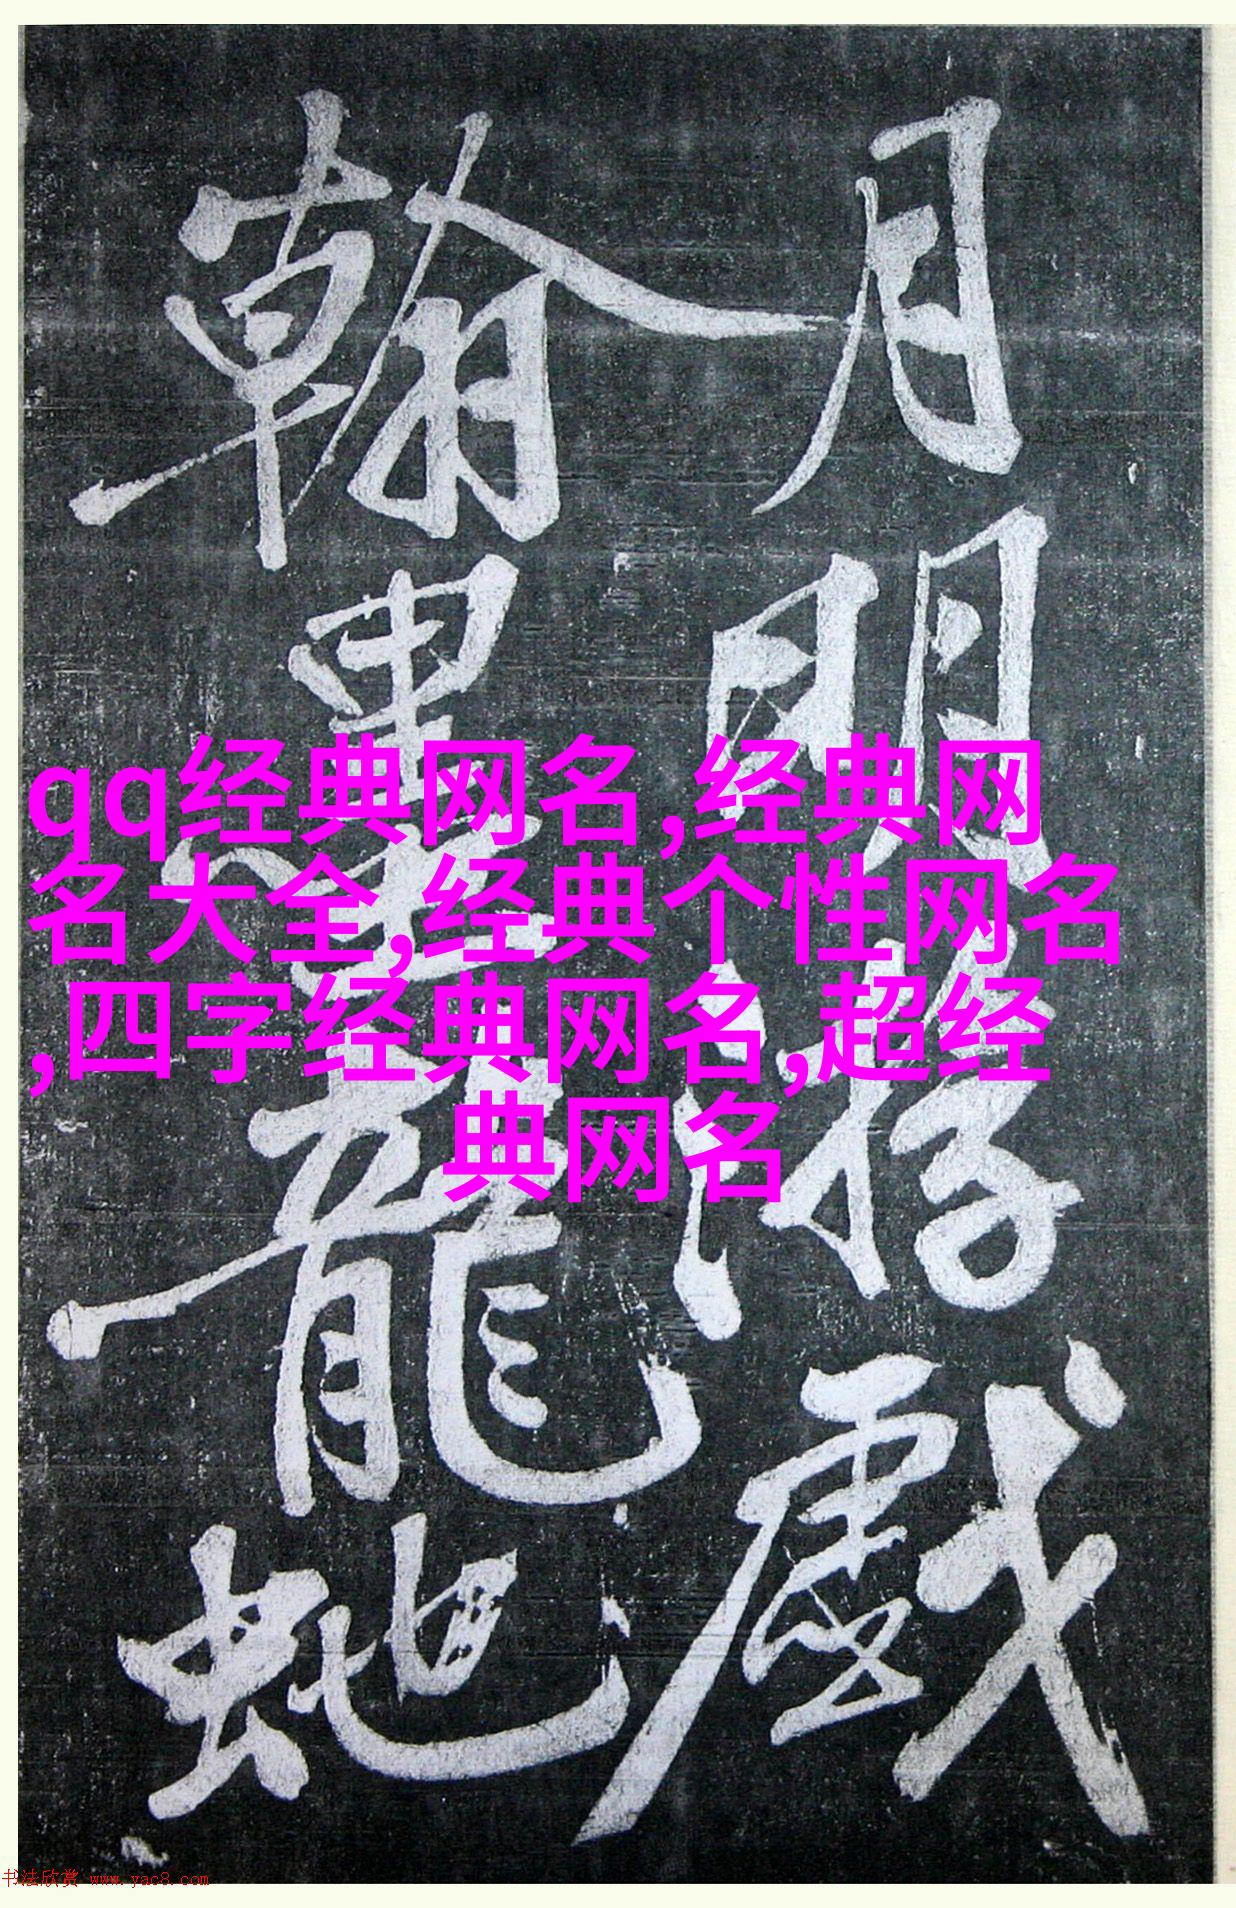 月明游戲
翰墨龍蛇
qq经典网名,经典网
名大全,经典个性网名
,四字经典网名,超经
典网名
书法欣赏 www.yac8.com